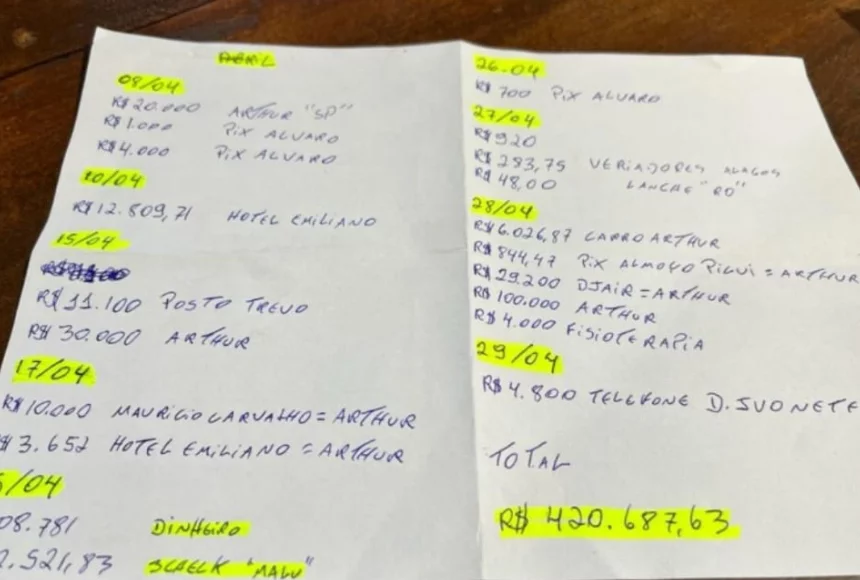 ABRIL
08/04
R$ 20.000 ARTHUR "SP"
R$ 1.000 PIX ALVARO
R$ 4.000 PIX ALVARO
10/04
R$ 12.809,71 HOTEL EMILIANO
15/04
R$ 11.100 POSTO TREVO
R$ 30.000 ARTHUR
17/04
R$ 10.000 MAURICIO CARVALHO = ARTHUR
R$ 3.652 HOTEL EMILIANO = ARTHUR
5/04
08.781 DINHEIRO
2.521,83 "MALU"
26.04
R$ 700 PIX ALVARO
27/04
R$ 920
R$ 283,75 VERIADORES
R$ 48,00 LANCHE "RO"
28/04
R$ 6.026,87 CARRO ARTHUR
R$ 844,47 PIX ALMOÇO PIGUI = ARTHUR
R$ 29.200 DJAIR = ARTHUR
R$ 100.000 ARTHUR
R$ 4.000 FISIOTERAPIA
29/04
R$ 4.800 TELEFONE D. IVONETE
TOTAL
R$ 420.687,63